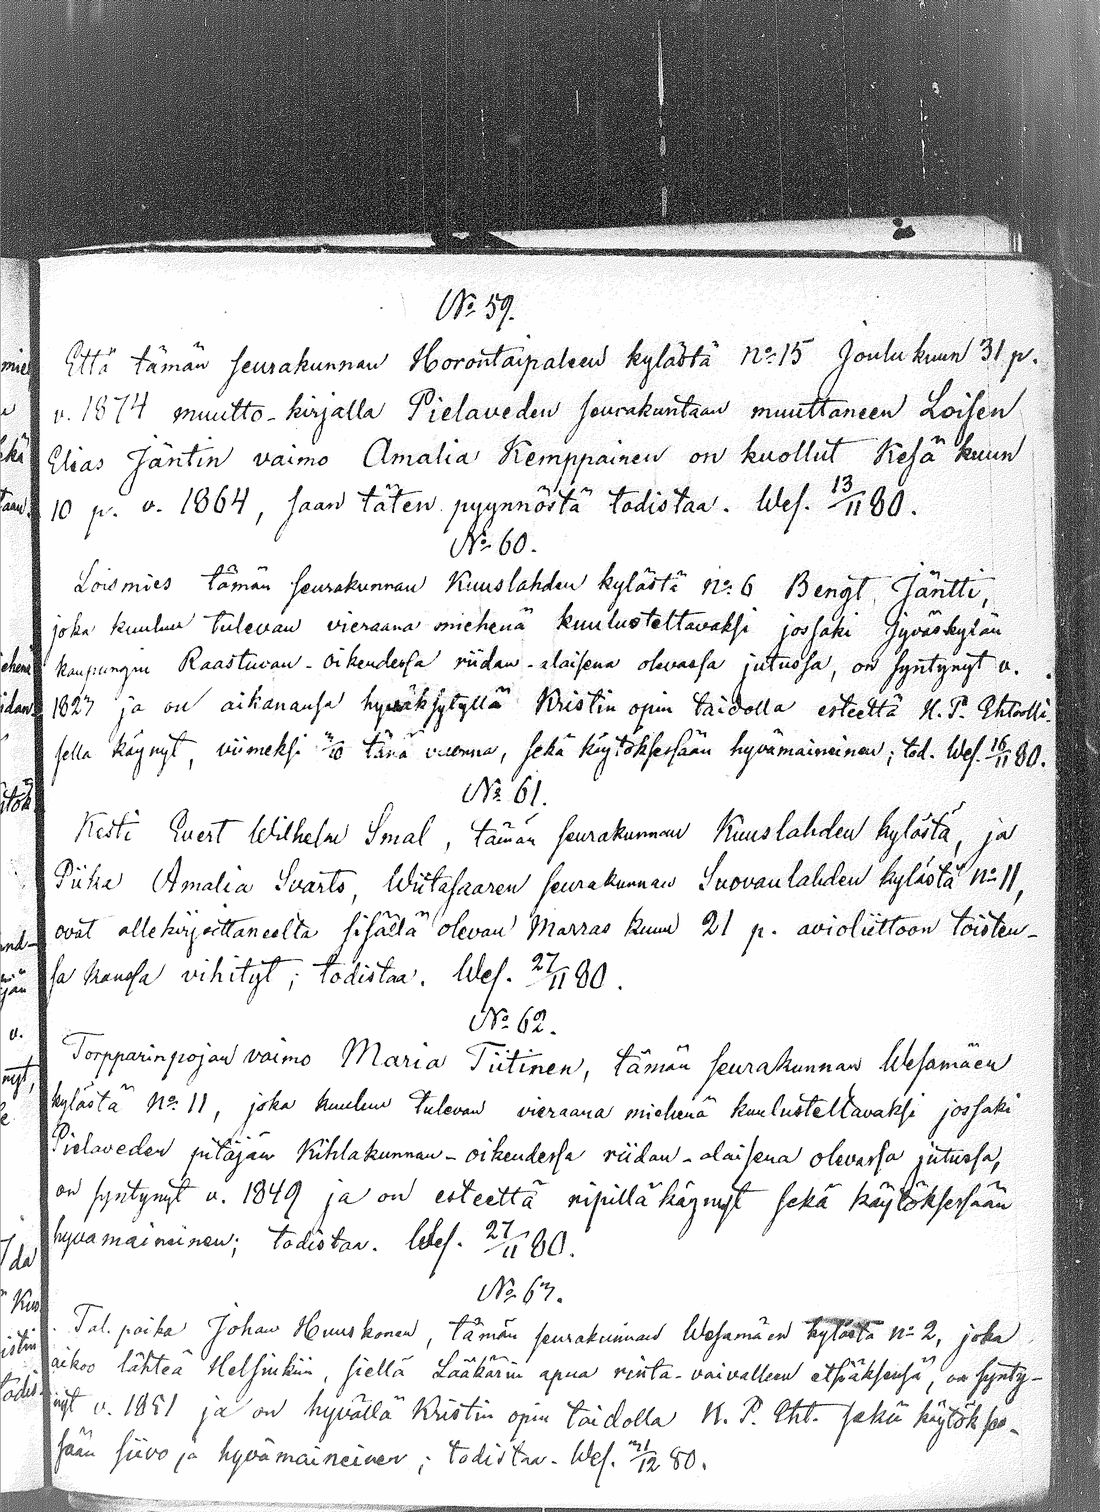 No 59.
Että tämän seurakunnan Horontaipaleen kylästä no 15 Joulukuun 31 p.
v. 1874 muutto-kirjalla Pielaveden seurakuntaan muuttaneen Loisen
Elias Jäntin vaimo Amalia Kemppainen on kuollut Kesä kuun
10 p. v. 1864, saan täten pyynnöstä todistaa. Wes. 13/11 80.
No 60.
Loismies tämän seurakunnan Kuuslahden kylästä no 6 Bengt Jäntti,
joka kuuluu tulevan vieraana miehenä kuulustettavaksi jossaki Jyväskylän
kaupungin Raastuvan-oikeudessa riidan-alaisena olevassa jutussa, on syntynyt v.
1823 ja on aikanansa hyväksytyllä Kristin opin taidolla esteettä H. P. Ehtoolli-
sella käynyt, viimeksi tänä vuonna, sekä käytöksessään hyvämaineinen; tod. Wes. 16/11 80.
No 61.
Kesti Evert Wilhelm Smal, tämän seurakunnan Kuuslahden kylästä, ja
Piika Amalia Svarts, Wiitasaaren seurakunnan Suovanlahden kylästä no 11,
ovat allekirjoittaneelta sisällä olevan Marras kuun 21 p. avioliittoon toisten-
sa kanssa vihityt; todistaa. Wes. 27/11 80.
No 62.
Torpparinpojan vaimo Maria Tiitinen, tämän seurakunnan Wesamäen
kylästä No 11, joka kuuluu tulevan vieraana miehenä kuulusteltavaksi jossaki
Pielaveden pitäjän Kihlakunnan-oikeudessa riidan-alaisena olevassa jutussa,
on syntynyt v. 1849 ja on esteettä ripillä käynyt sekä käytöksessään
hyvämaineinen; todistaa. Wes. 27/11 80.
No 63.
Tal. poika Johan Huuskonen, tämän seurakunnan Wesamäen kylästä no 2, joka
aikoo lähteä Helsinkiin, siellä Lääkärin apua rinta-vaivalleen etsiäksensä, on synty-
nyt v. 1851 ja on hyvällä Kristin opin taidolla H. P. Eht. sekä käytökses-
sään siivo ja hyvämaineinen; todistaa. Wes. /12 80.